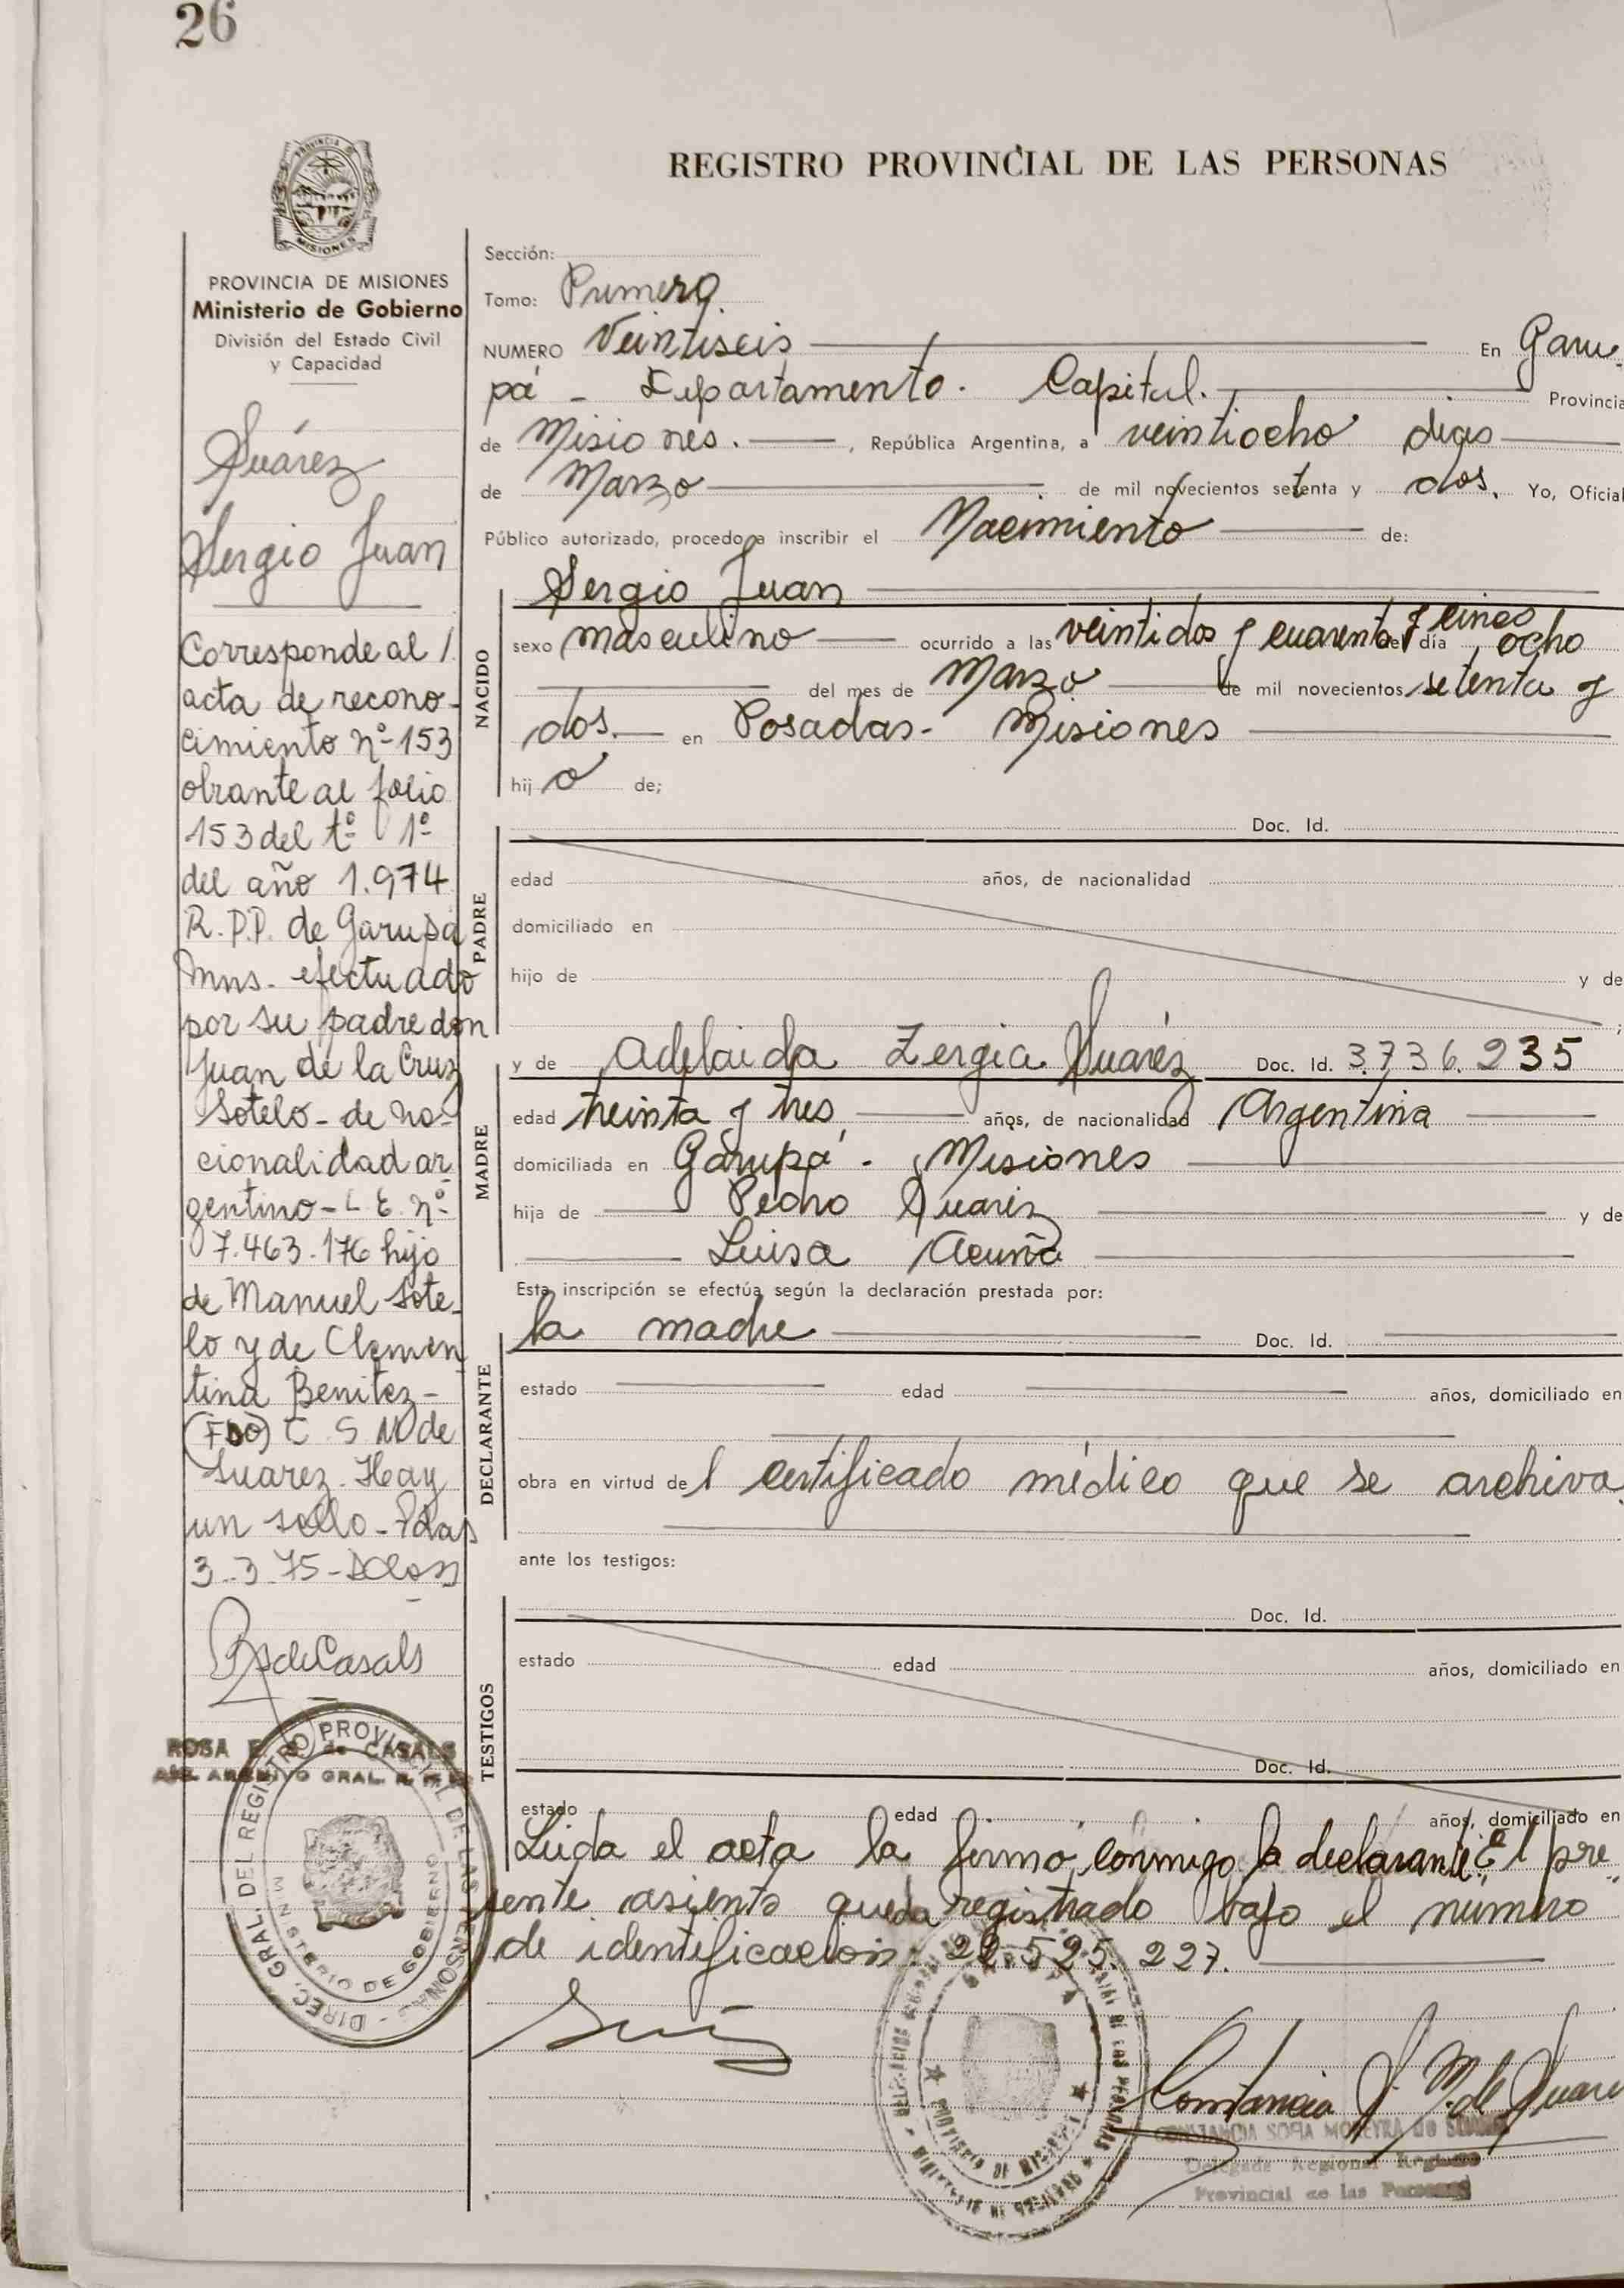 26
REGISTRO PROVINCIAL DE LAS PERSONAS
MISIONES
PROVINCIA DE MISIONES
Ministerio de Gobierno
División del Estado Civil
y Capacidad
Suárez
Sergio Juan
Corresponde al /
acta de recono-
cimiento nº 153
obrante al folio
153 del tº 1º
del año 1.974
R.P.P. de Garupá
Mns. efectuado
por su padre don
Juan de la Cruz
Sotelo - de na-
cionalidad ar
gentino - L E. nº
7.463.176 hijo
de Manuel Sote-
lo y de Clemen
tina Benitez -
(FDO) C S M de
Suarez. Hay
un sello - Pdas
3-3-75 -
R S de Casals
ROSA E. S. de CASALS
ARCHIVO GRAL.
DIREC. GRAL. DEL REGISTRO PROVINCIAL DE LAS PERSONAS -
MINISTERIO DE GOBIERNO
Sección:
Tomo: Primero
NUMERO Veintiseis En Garu-
pá - Departamento. Capital. Provincia
de Misiones. , República Argentina, a veintiocho dias
de Marzo de mil novecientos setenta y dos. Yo, Oficial
Público autorizado, procedo a inscribir el Nacimiento de:
NACIDO
Sergio Juan
sexo masculino ocurrido a las veintidos y cuarenta y cinco del día ocho
del mes de Marzo de mil novecientos setenta y
dos. en Posadas - Misiones
hij o de;
PADRE
Doc. Id.
edad años, de nacionalidad
domiciliado en
hijo de y de
;
MADRE
y de Adelaida Zergia Suárez Doc. Id. 3.736.235
edad treinta y tres años, de nacionalidad Argentina
domiciliada en Garupá - Misiones
hija de Pedro Suarez y de
Luisa Acuña
Esta inscripción se efectúa según la declaración prestada por:
DECLARANTE
la madre Doc. Id.
estado edad años, domiciliado en
obra en virtud de l certificado médico que se archiva.
ante los testigos:
TESTIGOS
Doc. Id.
estado edad años, domiciliado en
Doc. Id.
estado edad años, domiciliado en
Leida el acta la firmo conmigo la declarante. El pre-
sente asiento queda registrado bajo el numero
de identificacion: 22.525.227.
PROVINCIA DE MISIONES
Constancia S. M. de Suarez
CONSTANCIA SOFIA MOREYRA de SUAREZ
Delegada Regional Registro
Provincial de las Personas